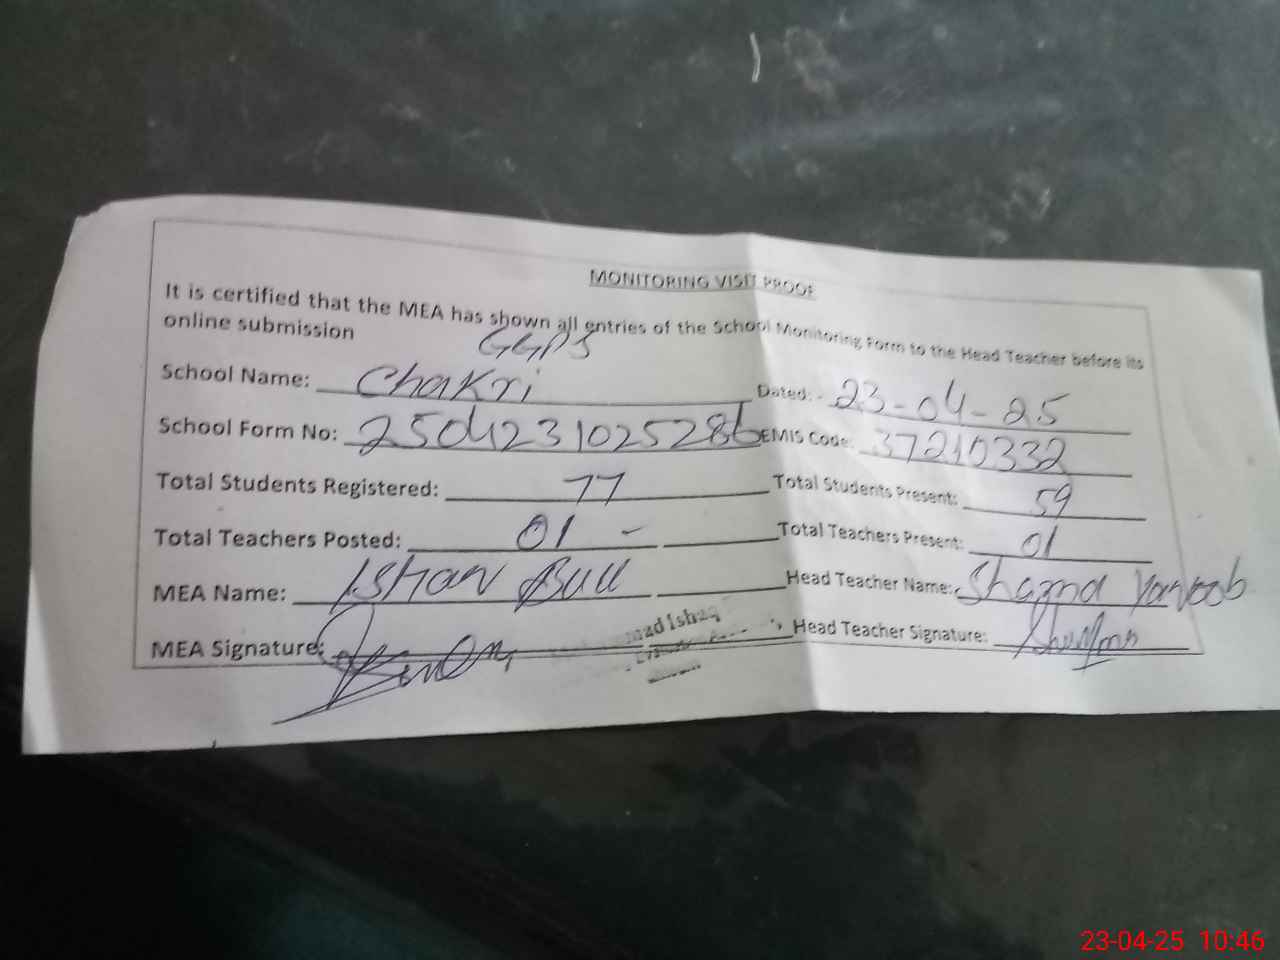 MONITORING VISIT PROOF
It is certified that the MEA has shown all entries of the School Monitoring Form to the Head Teacher before its
online submission
GGPS
School Name: Chakri Dated: - 23-04-25
School Form No: 2504231025286 EMIS Code: 37210332
Total Students Registered: 77 Total Students Present: 59
Total Teachers Posted: 01 - Total Teachers Present: 01
MEA Name: Head Teacher Name: Shazna
MEA Signature: Ishaq Head Teacher Signature:
23-04-25 10:46